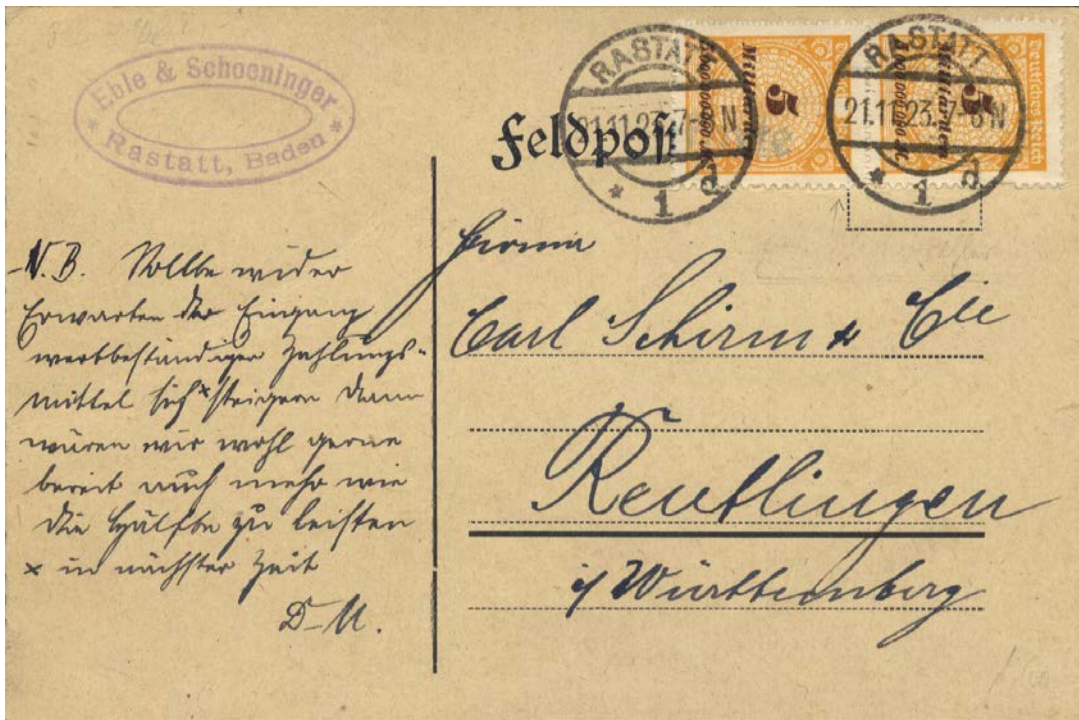 Eble & Schoeninger
* Rastatt, Baden *
Feldpost
RASTATT
21.11.23. 7-8 N
* 1 d
5
Milliarden
RASTATT
21.11.23. 7-8 N
* 1 d
5
Milliarden
Deutsches Reich
N.B. Sollte wider
Erwarten der Eingang
wertbeständiger Zahlungs-
mittel sich × steigern dann
wären wir wohl gerne
bereit auch mehr wie
die Hälfte zu leisten
× in nächster Zeit
D-U.
Firma
Carl Schirm & Cie
Reutlingen
i/Württemberg